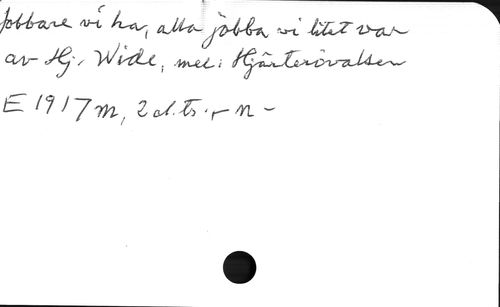 Jobbare vi ha, alla jobba vi litet var
av Hj. Wide, mel: Hjärterövalsen
E 1917 M, 2 d.ts. + N -